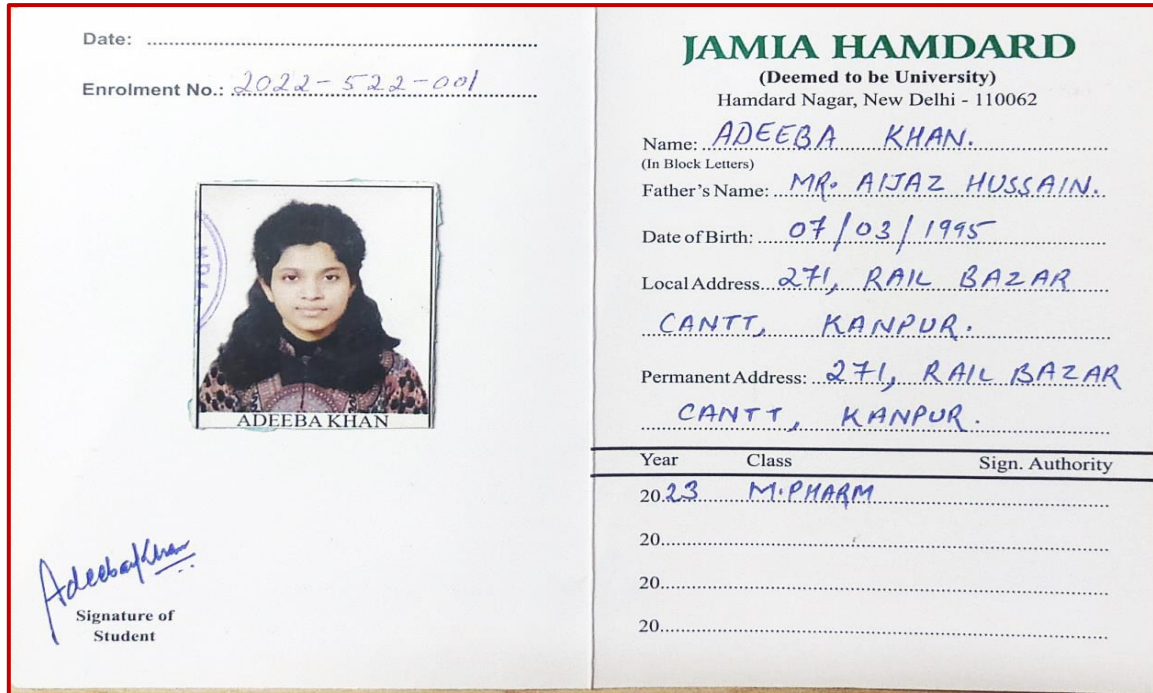 Date: ........................
Enrolment No.: 2022-522-001
MDA
ADEEBA KHAN
Adeeba Khan
Signature of
Student
JAMIA HAMDARD
(Deemed to be University)
Hamdard Nagar, New Delhi - 110062
Name: ADEEBA KHAN.
(In Block Letters)
Father's Name: MR. AIJAZ HUSSAIN.
Date of Birth: 07/03/1995
Local Address 271, RAIL BAZAR
CANTT, KANPUR.
Permanent Address: 271, RAIL BAZAR
CANTT, KANPUR.
Year Class Sign. Authority
2023 M.PHARM
20
20
20